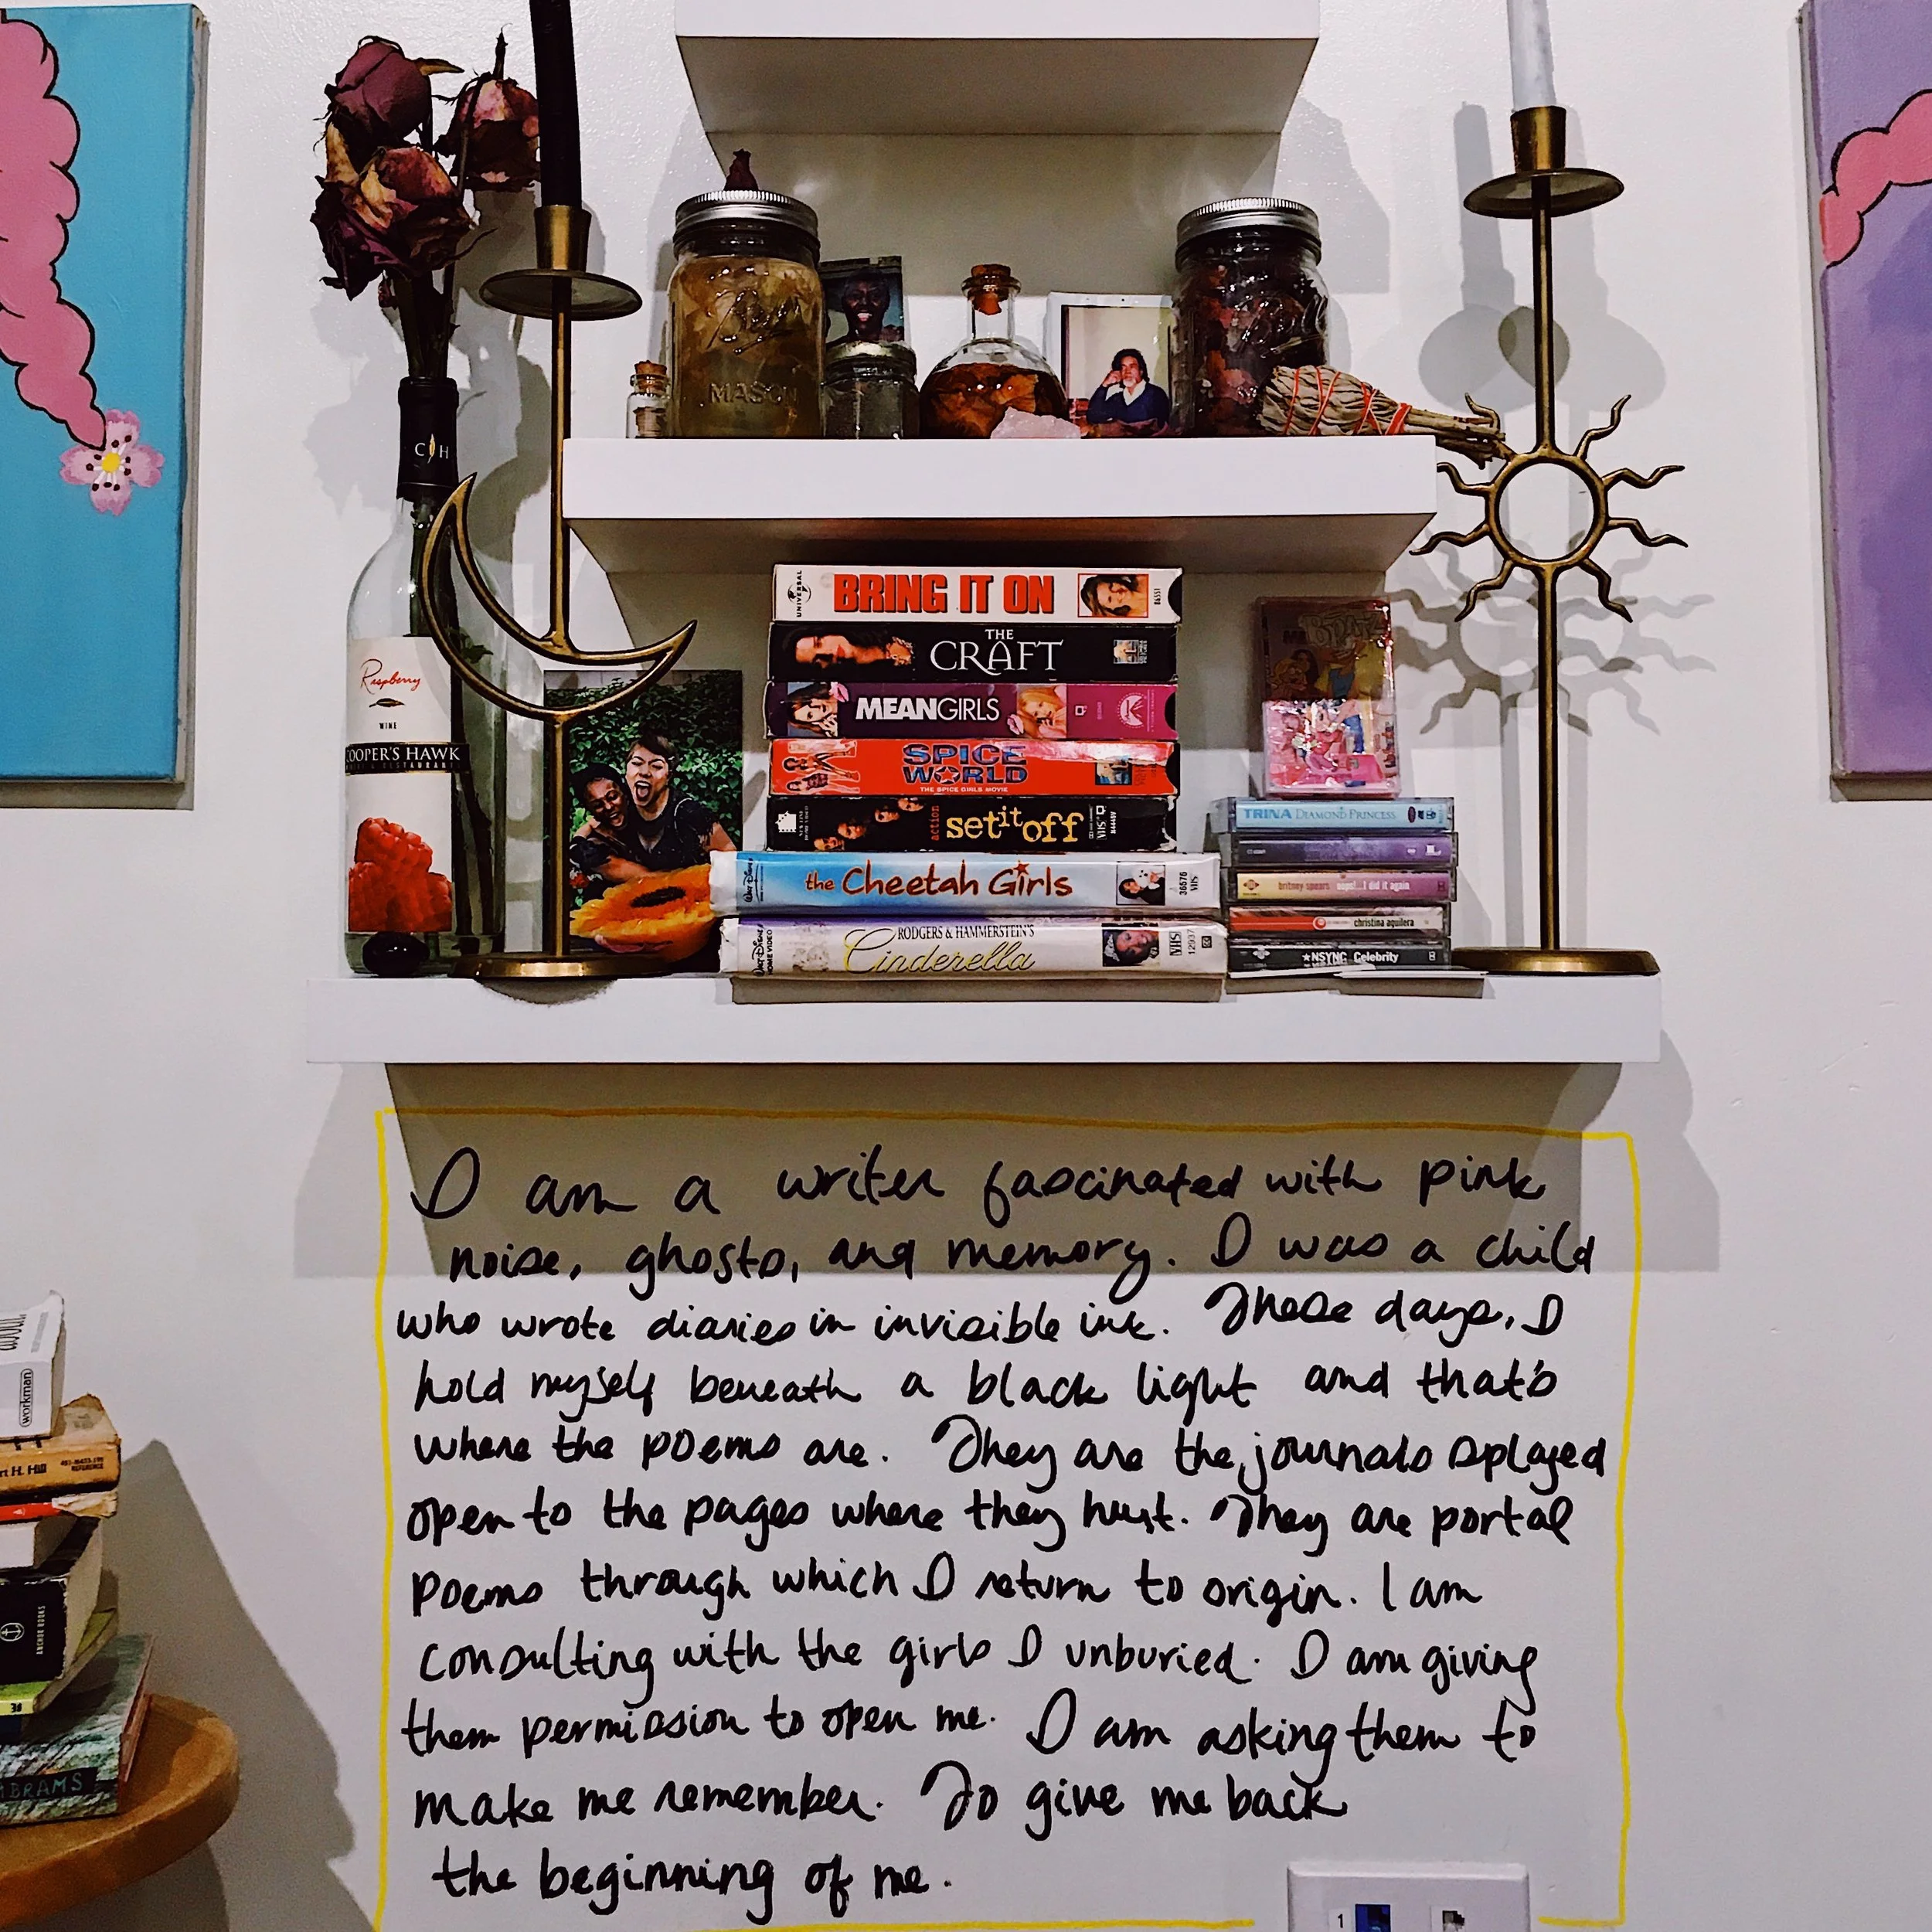 MASON
C H
Raspberry
WINE
COOPER'S HAWK
UNIVERSAL
BRING IT ON
86551
THE
CRAFT
MEAN GIRLS
SPICE
WORLD
THE SPICE GIRLS MOVIE
action
set it off
VHS
WALT DISNEY
the Cheetah Girls
36576
VHS
WALT DISNEY
HOME VIDEO
RODGERS & HAMMERSTEIN'S
Cinderella
VHS
12937
TRINA DIAMOND PRINCESS
britney spears oops!...I did it again
christina aguilera
*NSYNC Celebrity
I am a writer fascinated with pink
noise, ghosts, and memory. I was a child
who wrote diaries in invisible ink. These days, I
hold myself beneath a black light and that's
where the poems are. They are the journals splayed
open to the pages where they hurt. They are portal
poems through which I return to origin. I am
consulting with the girls I unburied. I am giving
them permission to open me. I am asking them to
make me remember. To give me back
the beginning of me.
workman
rt H. Hill
REFERENCE
ANCHOR BOOKS
ABRAMS
1